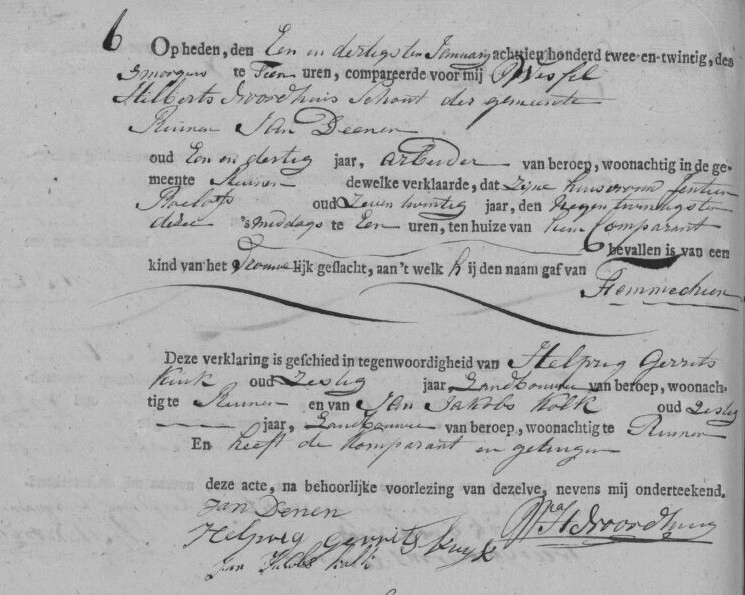 6 Op heden, den Een en dertigsten January achttien honderd twee-en-twintig, des
smorgens te Tien uren, compareerde voor mij Wesfel
Hilberts Noordhuis Schout der gemeente
Ruinen Jan Deenen
oud Een en dertig jaar, Arbeider van beroep, woonachtig in de ge-
meente Ruinen dewelke verklaarde, dat zijne huisvrouw
Roelofs oud Zeven twintig jaar, den Negen twintigsten
dezer 's middags te Een uren, ten huize van hem Comparant
bevallen is van een
kind van het Vrouwelijk geslacht, aan 't welk hij den naam gaf van
Femmechien
Deze verklaring is geschied in tegenwoordigheid van Helprig Gerrits
Kuik oud Zestig jaar, Landbouwer van beroep, woonach-
tig te Ruinen en van Jan Jakobs Kolk oud Zestig
jaar, Landbouwer van beroep, woonachtig te Ruinen
En heeft de komparant en getuigen
deze acte, na behoorlijke voorlezing van dezelve, nevens mij onderteekend.
Jan Denen
Helprig Gerrits Kuyk
Jan Jakobs kolk
WH Noordhuis